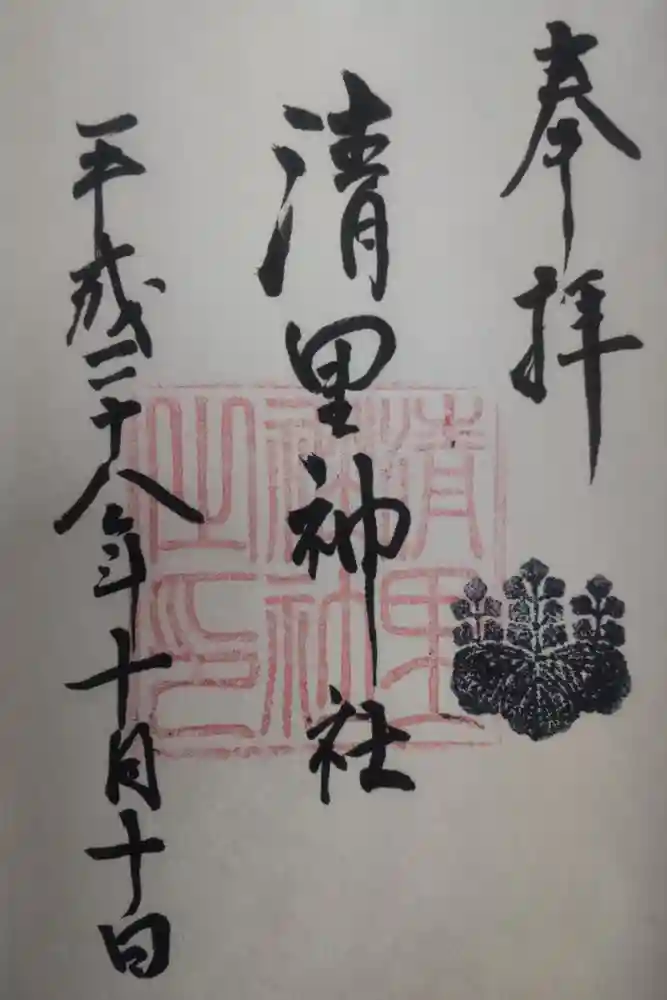 奉拝
清里神社
清里神社之印
平成二十八年十月十日